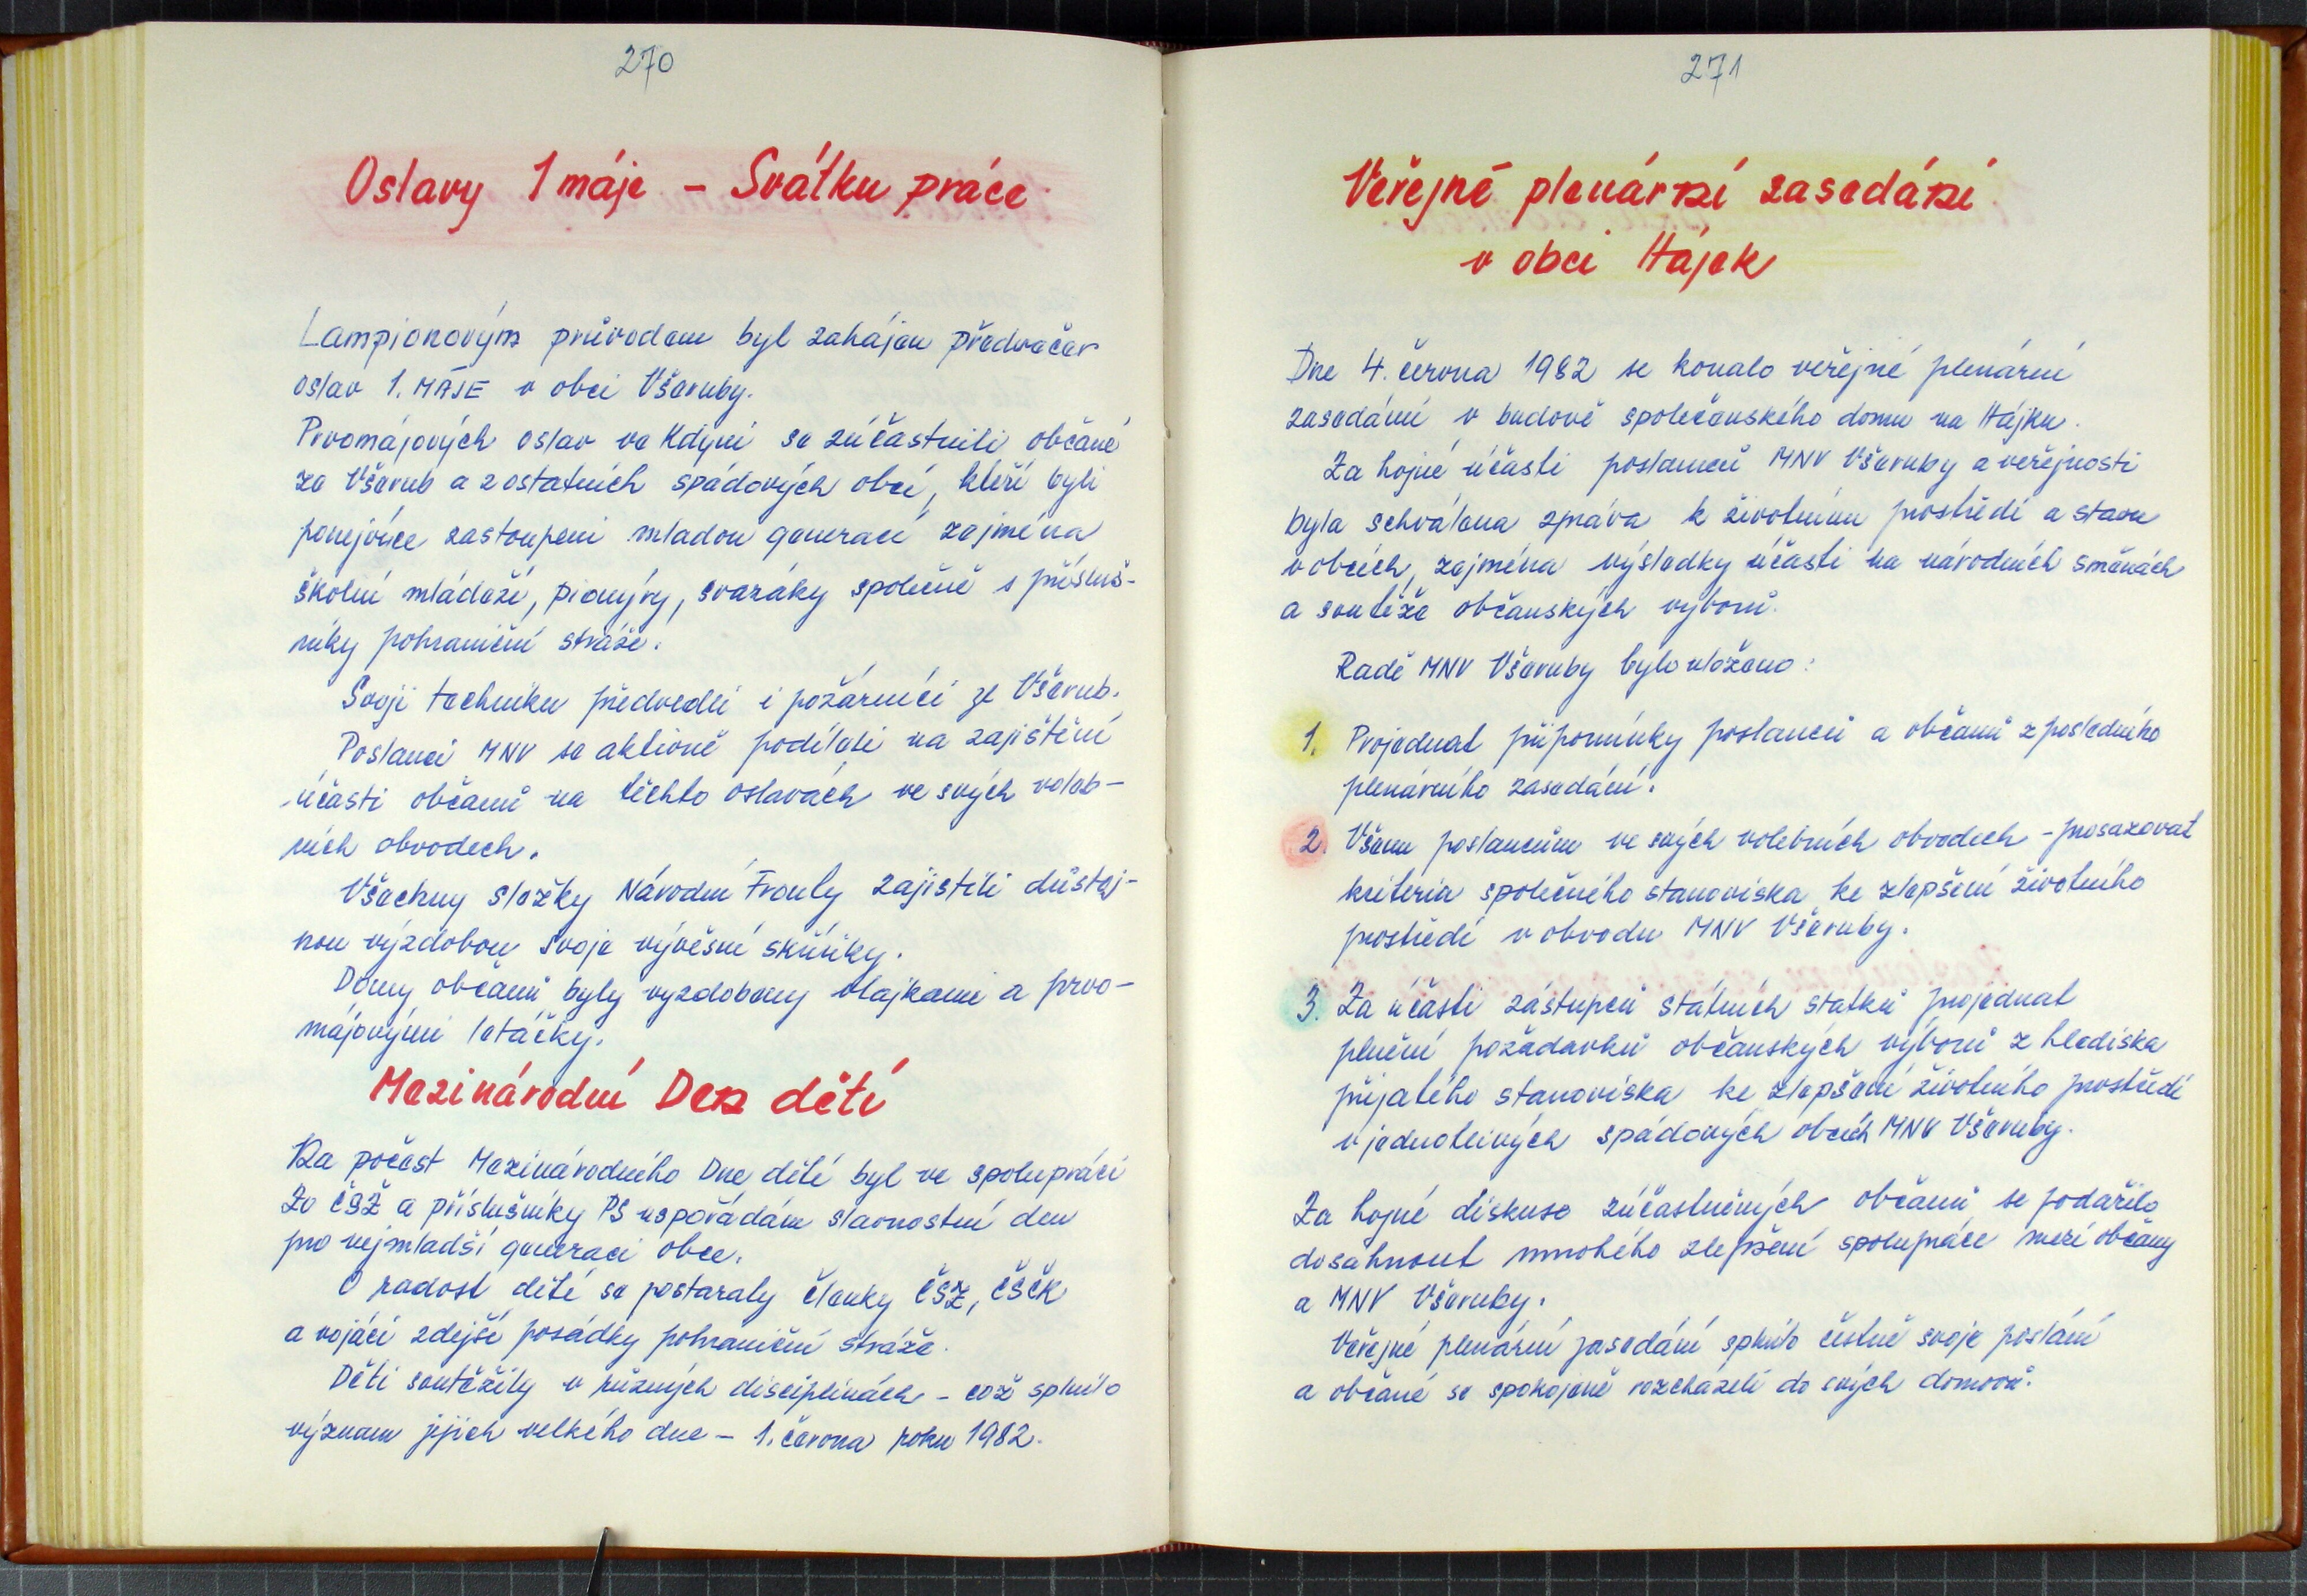 270
Oslavy 1 máje - Svátku práce
Lampionovým průvodem byl zahájen předvečer
oslav 1. MÁJE v obci Všeruby.
Prvomájových oslav ve Kdyni se zúčastnili občané
ze Všerub a z ostatních spádových obcí, kteří byli
ponejvíce zastoupeni mladou generací zejména
školní mládeží, pionýry, svazáky společně s přísluš-
níky pohraniční stráže.
Svoji techniku předvedli i požárníci ze Všerub.
Poslanci MNV se aktivně podíleli na zajištění
účasti občanů na těchto oslavách ve svých voleb-
ních obvodech.
Všechny složky Národní Fronty zajistili důstoj-
nou výzdobou svoje vývěsní skříňky.
Domy občanů byly vyzdobeny vlajkami a prvo-
májovými letáčky.
Mezinárodní Den dětí
Na počest Mezinárodního Dne dětí byl ve spolupráci
Zo ČSŽ a příslušníky PS uspořádán slavnostní den
pro nejmladší generaci obce.
O radost dětí se postaraly členky ČSŽ, ČSČK
a vojáci zdejší posádky pohraniční stráže.
Děti soutěžily v různých disciplinách - což splnilo
význam jejich velkého dne - 1. června roku 1982.
271
Veřejné plenární zasedání
v obci Hájek
Dne 4. června 1982 se konalo veřejné plenární
zasedání v budově společenského domu na Hájku.
Za hojné účasti poslanců MNV Všeruby a veřejnosti
byla schválena zpráva k životnímu prostředí a stavu
v obcích, zejména výsledky účasti na národních směnách
a soutěže občanských výborů.
Radě MNV Všeruby bylo uloženo:
1. Projednat připomínky poslanců a občanů z posledního
plenárního zasedání.
2. Všem poslancům ve svých volebních obvodech - prosazovat
kriteria společného stanoviska ke zlepšení životního
prostředí v obvodu MNV Všeruby.
3. Za účasti zástupců státních statků projednat
plnění požadavků občanských výborů z hlediska
přijatého stanoviska ke zlepšení životního prostředí
v jednotlivých spádových obcích MNV Všeruby.
Za hojné diskuse zúčastněných občanů se podařilo
dosáhnout mnohého zlepšení spolupráce mezi občany
a MNV Všeruby.
Veřejné plenární zasedání splnilo čestně svoje poslání
a občané se spokojeně rozcházeli do svých domovů.